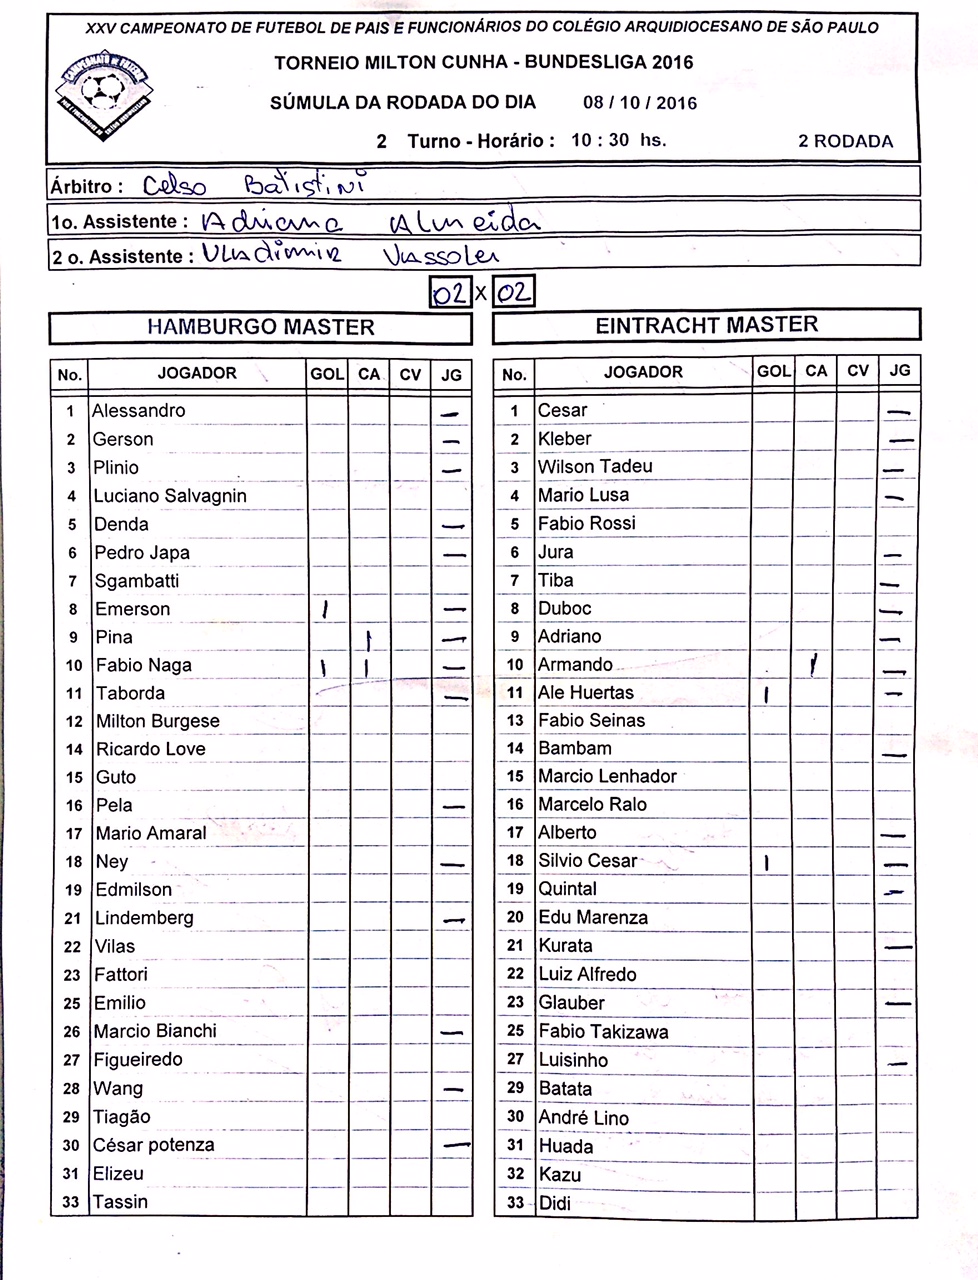 XXV CAMPEONATO DE FUTEBOL DE PAIS E FUNCIONÁRIOS DO COLÉGIO ARQUIDIOCESANO DE SÃO PAULO
TORNEIO MILTON CUNHA - BUNDESLIGA 2016
SÚMULA DA RODADA DO DIA 08 / 10 / 2016
2 Turno - Horário : 10 : 30 hs. 2 RODADA
Árbitro : Celso Batistini
1o. Assistente : Adriana Almeida
2 o. Assistente : Vladimir Vassoler
02 X 02
HAMBURGO MASTER
No. JOGADOR GOL CA CV JG
1 Alessandro —
2 Gerson —
3 Plinio —
4 Luciano Salvagnin
5 Denda —
6 Pedro Japa —
7 Sgambatti
8 Emerson | —
9 Pina | —
10 Fabio Naga | | —
11 Taborda —
12 Milton Burgese
14 Ricardo Love
15 Guto
16 Pela —
17 Mario Amaral
18 Ney —
19 Edmilson
21 Lindemberg —
22 Vilas
23 Fattori
25 Emilio
26 Marcio Bianchi —
27 Figueiredo
28 Wang —
29 Tiagão
30 César potenza —
31 Elizeu
33 Tassin
EINTRACHT MASTER
No. JOGADOR GOL CA CV JG
1 Cesar —
2 Kleber —
3 Wilson Tadeu —
4 Mario Lusa —
5 Fabio Rossi
6 Jura —
7 Tiba —
8 Duboc —
9 Adriano —
10 Armando | —
11 Ale Huertas | —
13 Fabio Seinas
14 Bambam —
15 Marcio Lenhador
16 Marcelo Ralo
17 Alberto —
18 Silvio Cesar | —
19 Quintal —
20 Edu Marenza
21 Kurata —
22 Luiz Alfredo
23 Glauber —
25 Fabio Takizawa
27 Luisinho —
29 Batata
30 André Lino
31 Huada
32 Kazu
33 Didi